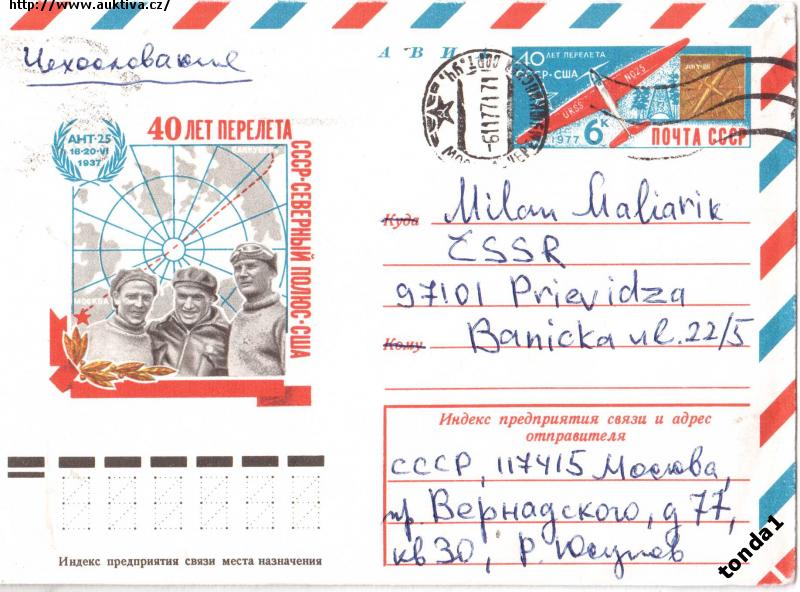 http://www.auktiva.cz/
Чехословакия
АВИА
40 ЛЕТ ПЕРЕЛЕТА
СССР-США
АНТ-25
URSS
NO25
6К
1977
ПОЧТА СССР
АНТ-25
18-20-VI
1937
40 ЛЕТ ПЕРЕЛЕТА
СССР-СЕВЕРНЫЙ ПОЛЮС-США
МОСКВА
Куда
Milan Maliarik
ČSSR
97101 Prievidza
Кому
Banicka ul. 22/5
Индекс предприятия связи и адрес
отправителя
СССР, 117415 Москва,
пр. Вернадского, д 77,
кв 30, Р. Юсупов
Индекс предприятия связи места назначения
tonda1